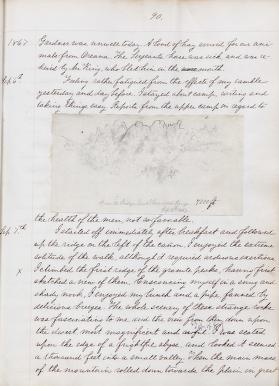 90.
1867 Gardner was unwell today. A load of hay arrived for our ani-
mals from Oreana. The Sergeants horse was sick and was re-
lieved by Mr King, who bled him in the mouth.
Sep. 6th Feeling rather fatigued from the effects of my ramble
yesterday and day before I stayed about camp, writing and
taking things easy. Reports from the upper camp in regard to
9000 ft
the health of the men, not unfavorable.
Sep. 7th I started off immediately after breakfast and followed
up the ridge on the left of the cañon. I enjoyed the extreme
solitude of the walk, although it required arduous exertions
x I climbed the first ridge of the granite peaks, having first
sketched a view of them. Ensconcing myself in a snug and
shady nook, I enjoyed my lunch and a pipe fanned by
delicious breezes. The whole scenery of these strange rocks
was fascinating to me, and the view from them down upon
the lowest most magnificent and I was seated
upon the edge of a frightful abyss, and looked it seemed
a thousand feet into a small valley. Then the main mass
of the mountain rolled down towards the plain in great